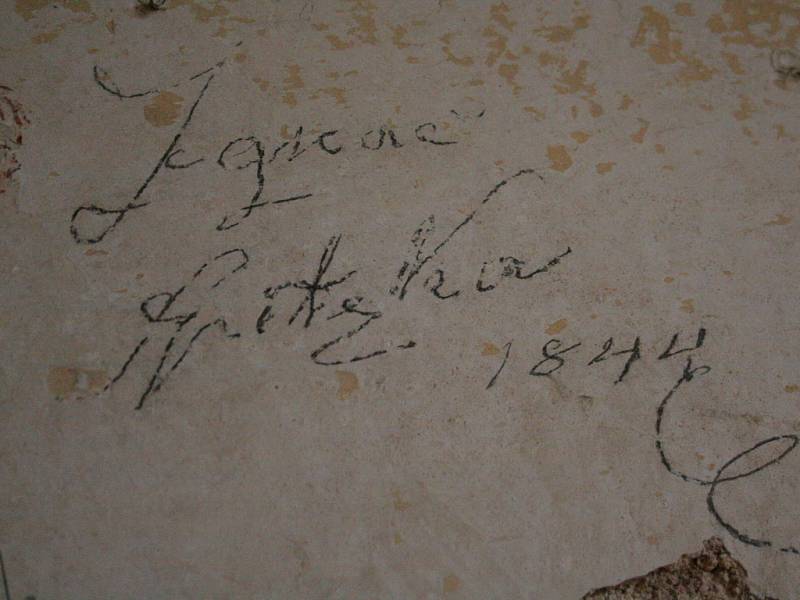 Ignac
Spitzka
1844